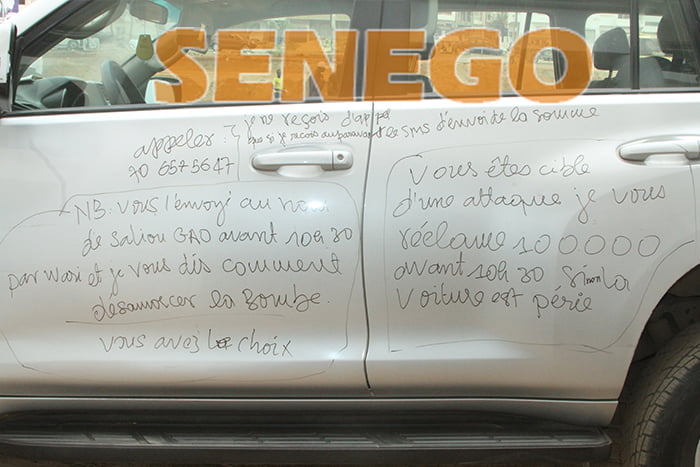 SENEGO
appeler :
70 6575647
je ne reçois d'appel
que si je reçois auparavant le SMS d'envoi de la somme
NB. Vous l'envoyé au nom
de Saliou GAO avant 10h 30
par wari et je vous dis comment
désamorcer la Bombe.
vous avez le choix
Vous êtes cible
d'une attaque je vous
réclame 100000
avant 10h 30 Sinon la
Voiture est périe